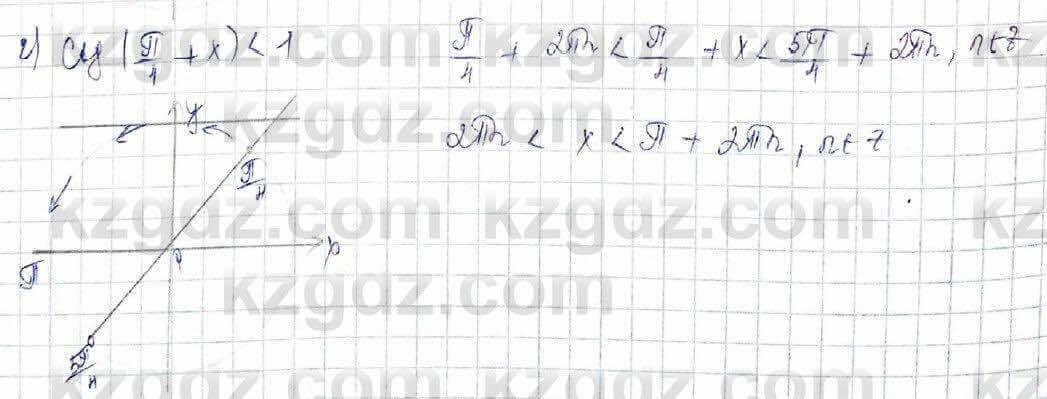 г) ctg(π/4 + x) < 1
π/4 + 2πn < π/4 + x < 5π/4 + 2πn, n∈z
2πn < x < π + 2πn, n∈z
y
π/4
x
0
π
5π/4
kzgdz.com
kzgdz.com
kzgdz.com
kzgdz.com
kzgdz.com
kzgdz.com
kzgdz.com